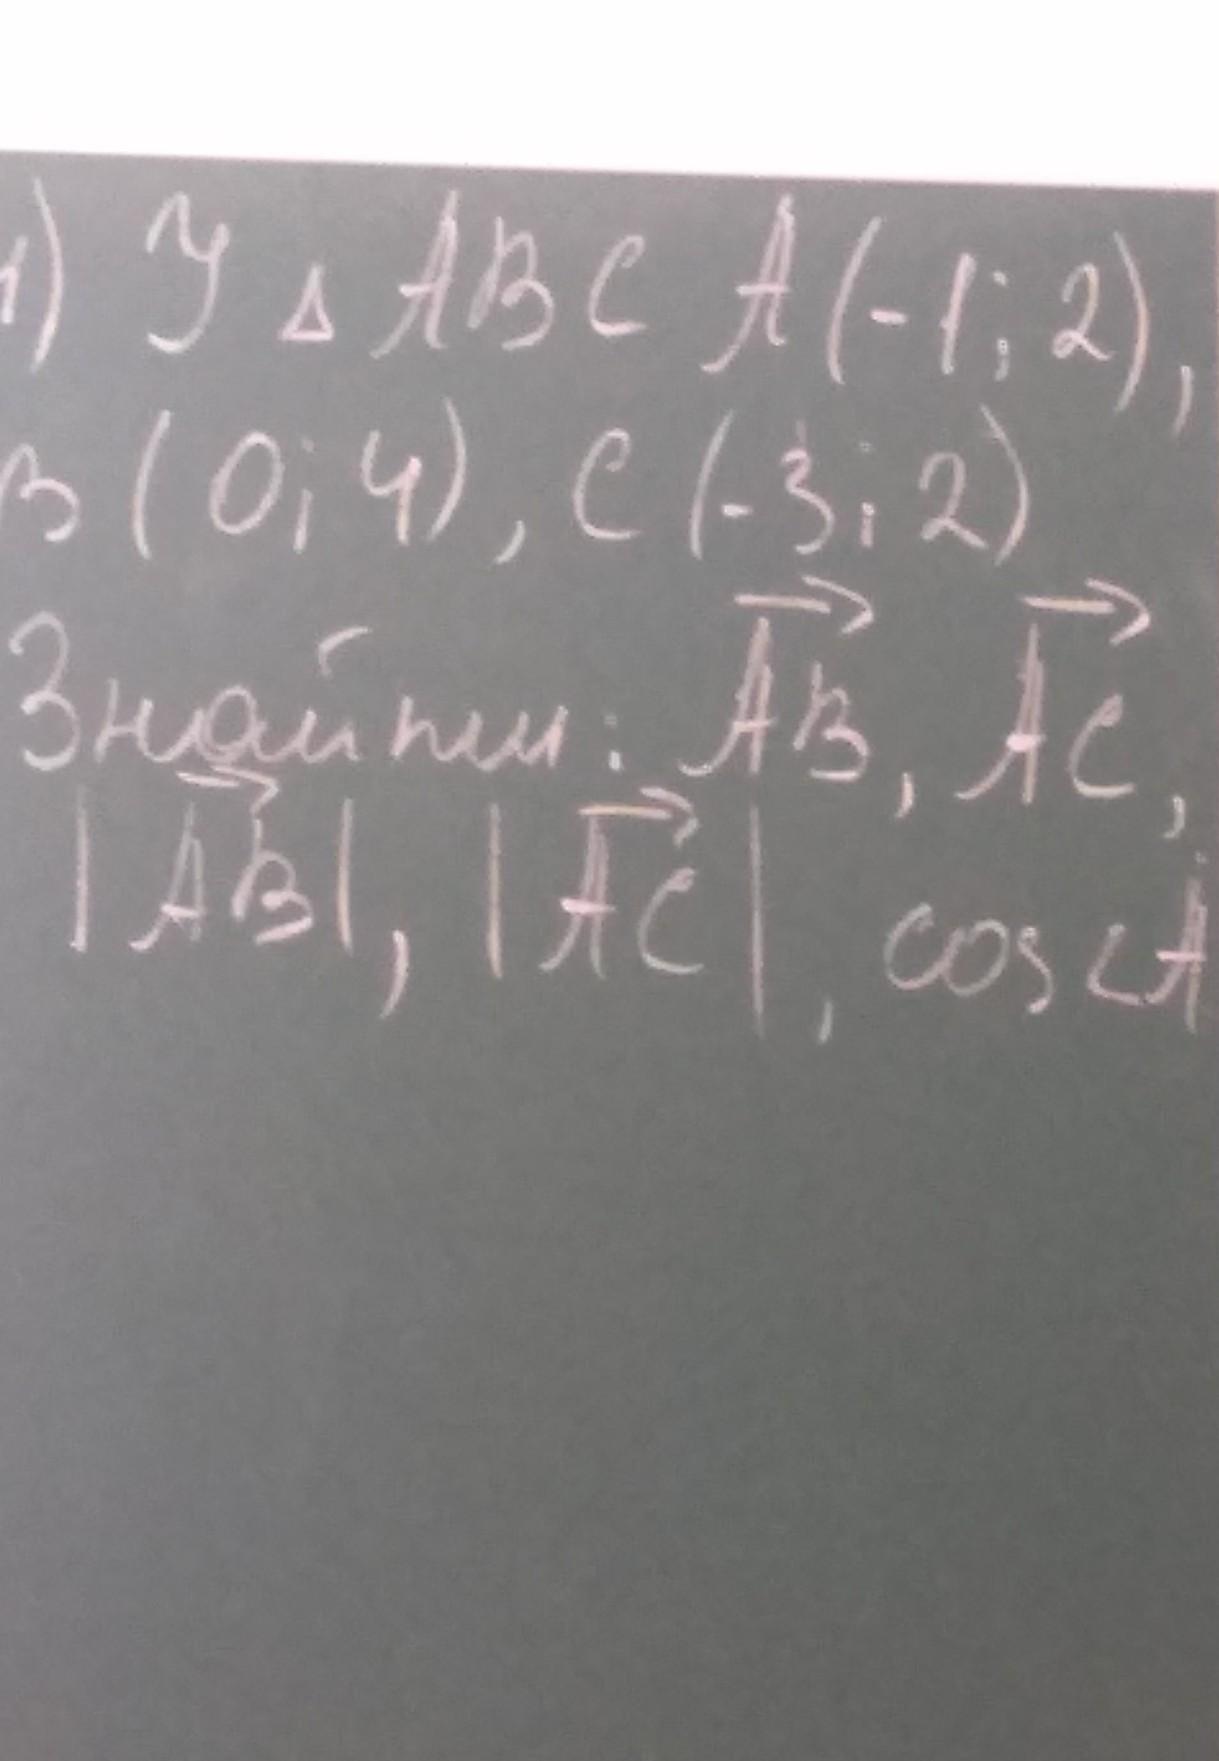 1) У △ ABC A(-1; 2),
B (0; 4), C (-3; 2)
Знайти: AB, AC,
|AB|, |AC|, cos∠A